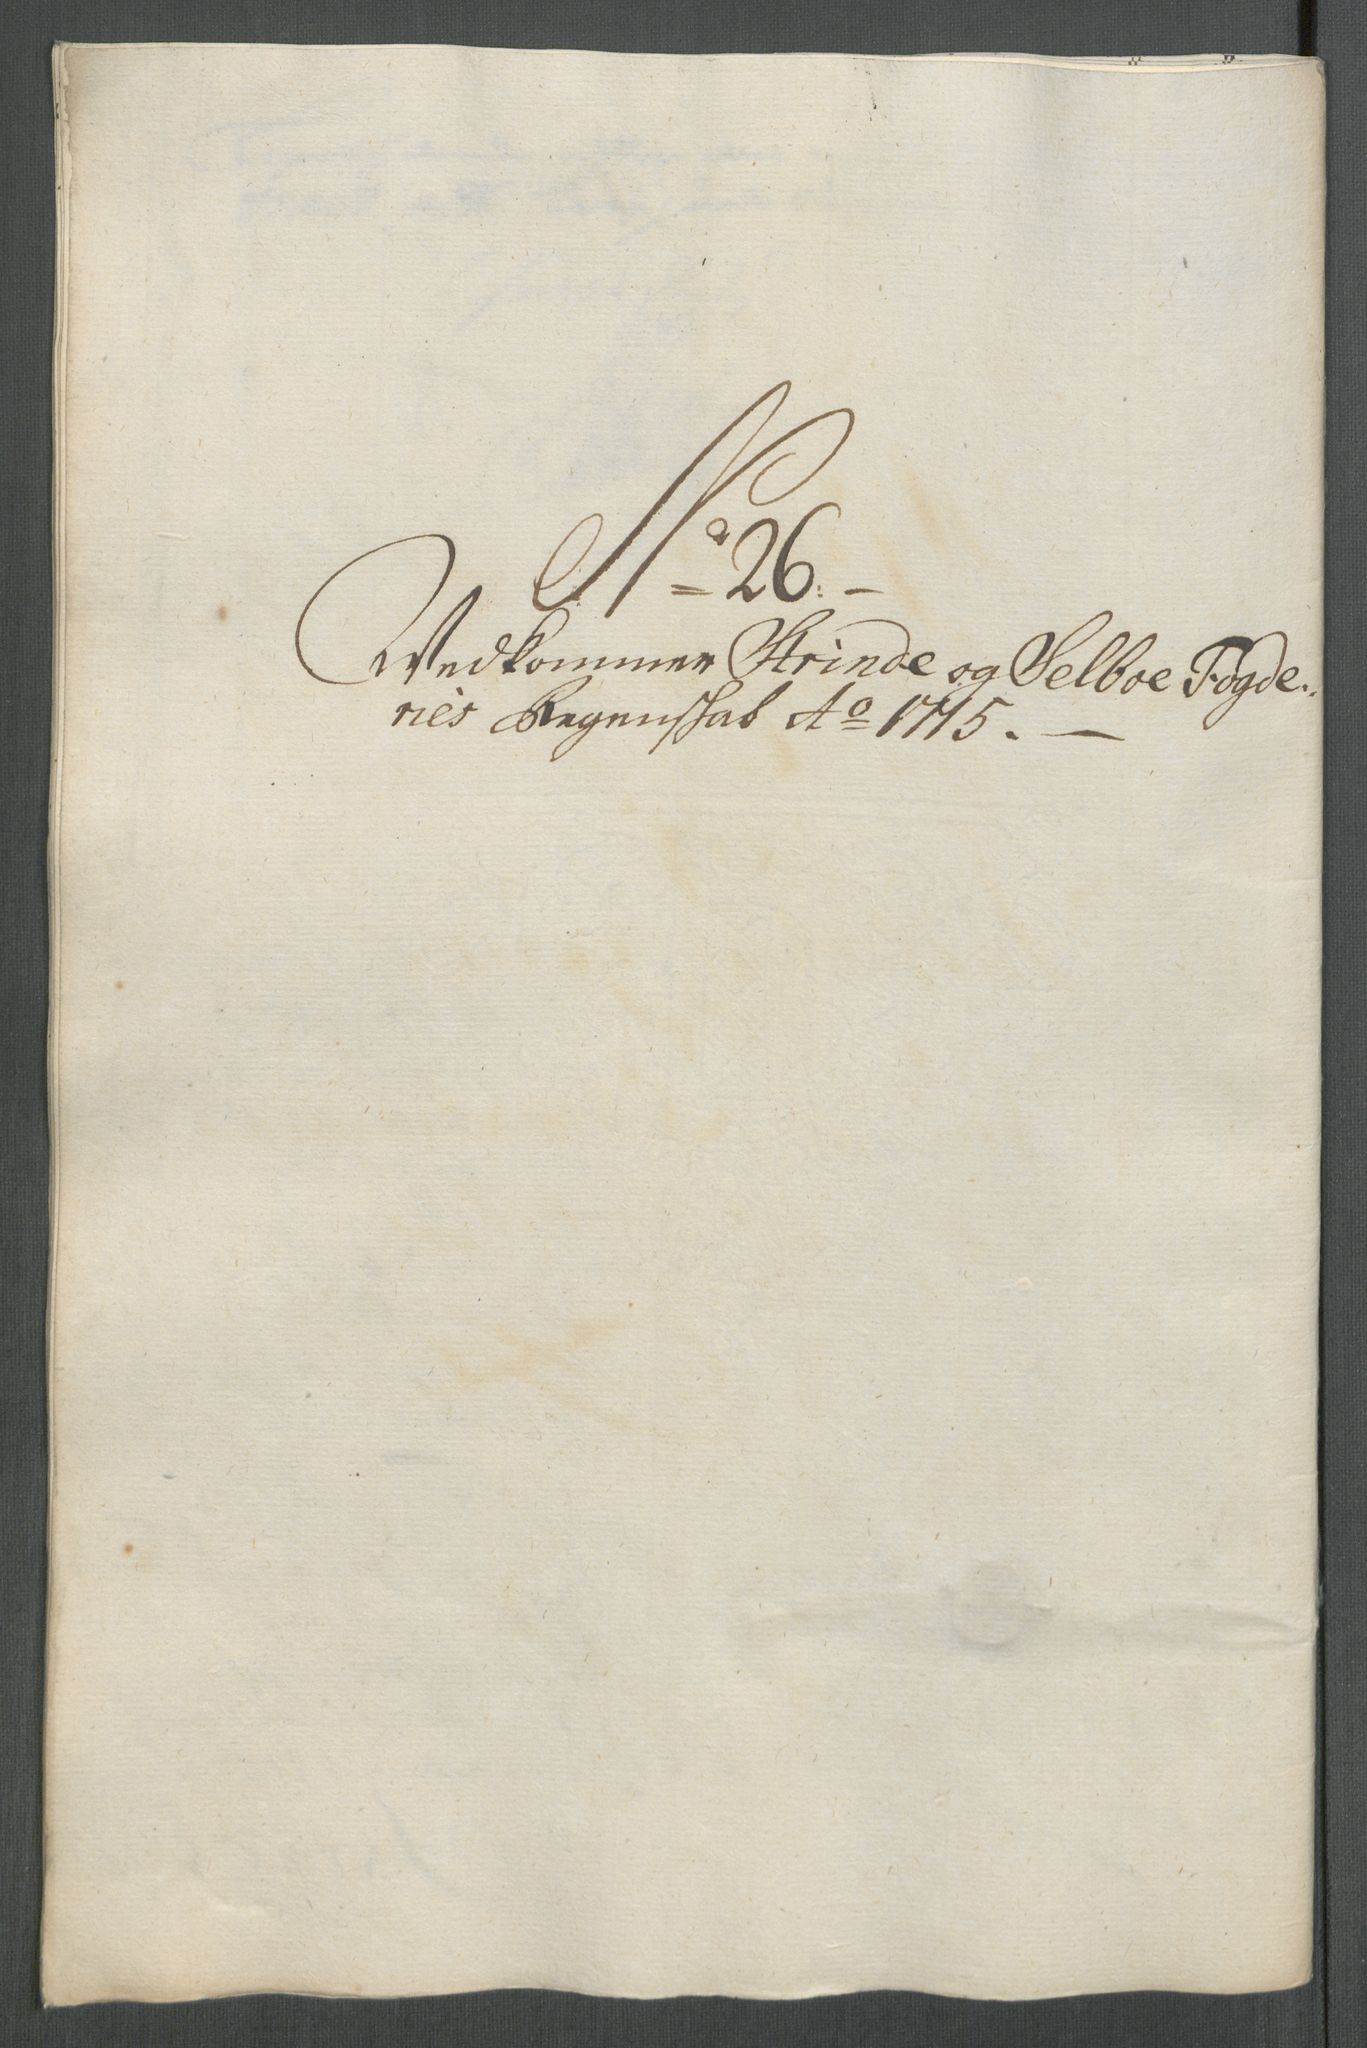 No 26.
Vedkommer Strinde og Selboe Fogde..
ries Regenskab Ao 1715.